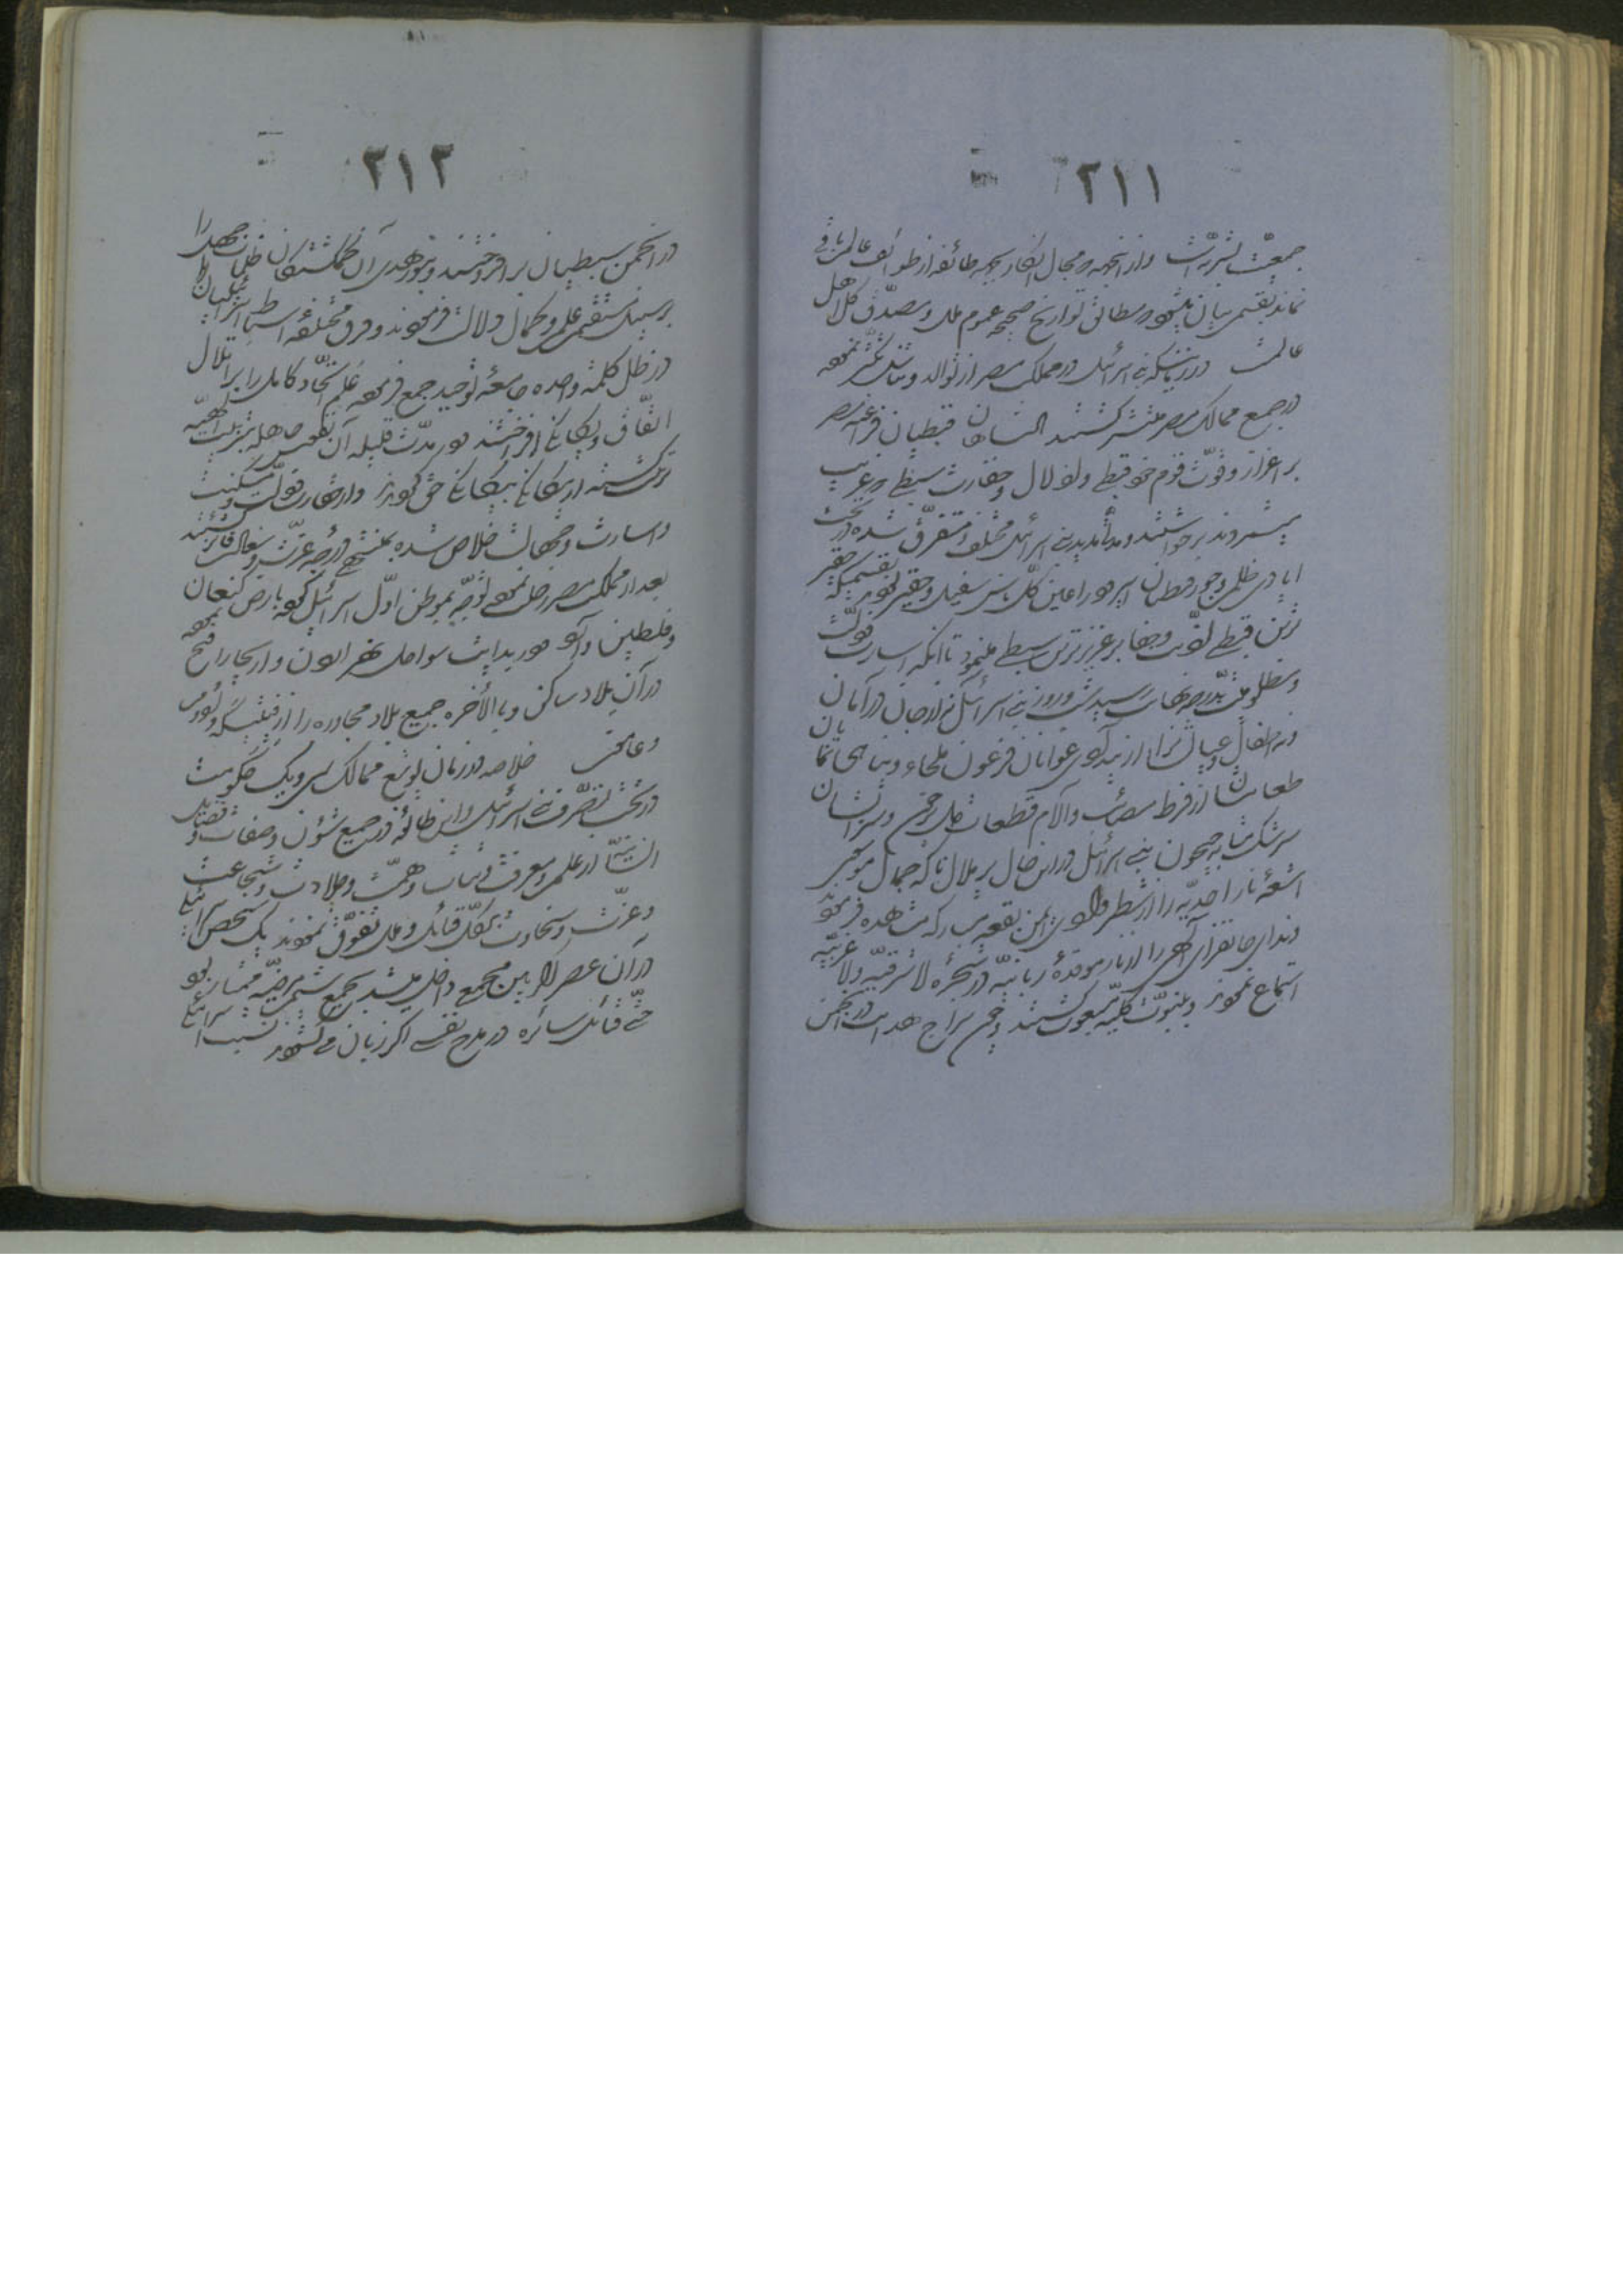 ٢١١
جمعیّت بشریّه است و از اینجهة مجال انکار بجهة طائفه از طوائف عالم باقی
نماند بقسمی بیان میشود که مطابق تواریخ صحیحه عموم ملل و مصدّق کلّ اهل
عالمست در زمانیکه بنی اسرائیل در مملکت مصر از توالد و تناسل تکثّر نموده
در جمیع ممالک مصر منتشر گشتند پادشاهان قبطیان فراعنه مصر
بر اعزاز و قوّت قوم خود قبطی و اذلال و حقارت سبطی که غریب
میشمردند برخواستند و مدّتی مدیده بنی اسرائیل مختلف و متفرّق شده در تحت
ایادی ظلم و جور قبطیان اسیر و در اعین کلّ ناس سفیل و حقیر بودند بقسمیکه حقیر
ترین قبطی اذیّت و جفا بر عزیزترین سبطی مینمود تا آنکه اسارت و ذلّت
و مظلومیّت بدرجه نهایت رسید شب و روز بنی اسرائیل نه از جان در امان
و نه اطفال و عیال را از تیرگی عوانان فرعون ملجاء و پناهی نمایان
طعامشان از فرط مصائب و آلام قطعات دل پر خون و شرابشان
سرشک مشابه جیحون بنی اسرائیل در این حال پر ملال تا که جمال موسی
اشعّه نار احدیّه را از شطر وادی ایمن بقعه مبارکه مشاهده فرمود
و ندای جانفزای الهی را از نار موقده ربانیّه در شجره لا شرقیّه و لا غربیّه
استماع نمود و بنبوّت کلّیه مبعوث گشتند و چون سراج هدایت در انجمن
٢١٢
در انجمن سبطیان برافروختند و بنور هدی آن گمگشتگان ظلمات جهل را
بر سبیل مستقیم علم و کمال دلالت فرمودند و فرق مختلفه اسباط اسرائیلیان را
در ظلّ کلمه واحده جامعه توحید جمع فرموده علم اتّحاد کامل را بر اتلال
اتّفاق و یگانگی افراختند در مدّت قلیله آن نفوس جاهله بتربیت الهیّه
تربیت گشته از بیگانگی بیگانگی حقّ گرویدند و از حقارت و ذلّت و مسکنت
و اسارت و جهالت خلاص شده بمنتهی درجه عزّت و سعادت فائز گشتند
بعد از مملکت مصر رحلت نموده توجّه بموطن اوّل اسرائیل گشته بارض کنعان
و فلسطین وارد و در بدایت سواحل نهر اردن و اریحا را فتح نموده
در آن بلاد ساکن و بالأخره جمیع بلاد مجاوره را از فینیکه و ادوم
و عامون خلاصه در زمان یوشع ممالک سی و یک حکومت
در تحت تصرّف بنی اسرائیل و این طائفه در جمیع شؤن و صفات و فضایل
انسانیّه از علم و معرفت و ثبات و همّت و جلادت و شجاعت
و عزّت و سخاوت بر کلّ قبائل و ملل تفوّق نمودند یک شخص اسرائیلی
در آن عصر اگر بین مجمعی داخل میشد بجمیع شیم مرضیّه ممتاز بود
حتّی قبائل سائره در مدح نفسی اگر زبان میگشودند نسبت اسرائیلی